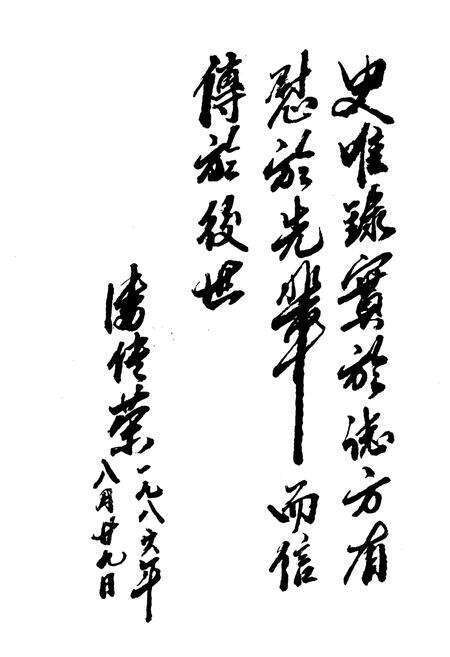 史唯錄實於誌方有
慰於先輩而信
傳於後世
潘佳榮
一九八六年
八月廿九日